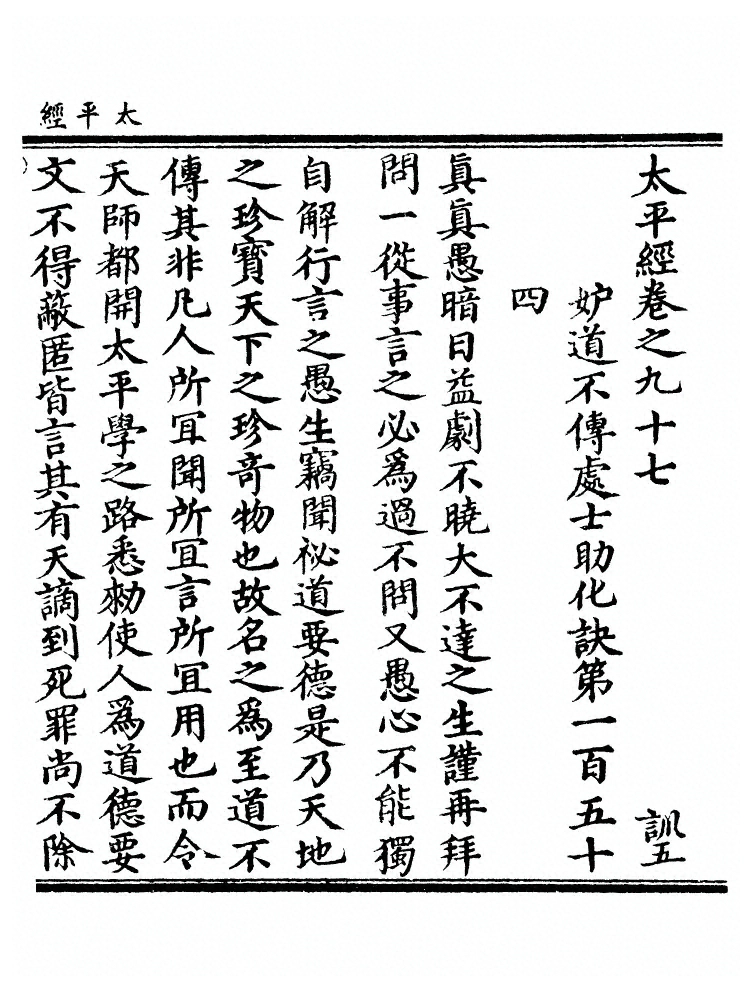 太平經
太平經卷之九十七
訓五
妒道不傳處士助化訣第一百五十
四
眞眞愚暗日益劇不曉大不達之生謹再拜
問一從事言之必爲過不問又愚心不能獨
自解行言之愚生竊聞祕道要德是乃天地
之珍寶天下之珍奇物也故名之爲至道不
傳其非凡人所冝聞所冝言所冝用也而令
天師都開太平學之路悉勑使人爲道德要
文不得蔽匿皆言其有天謫到死罪尚不除